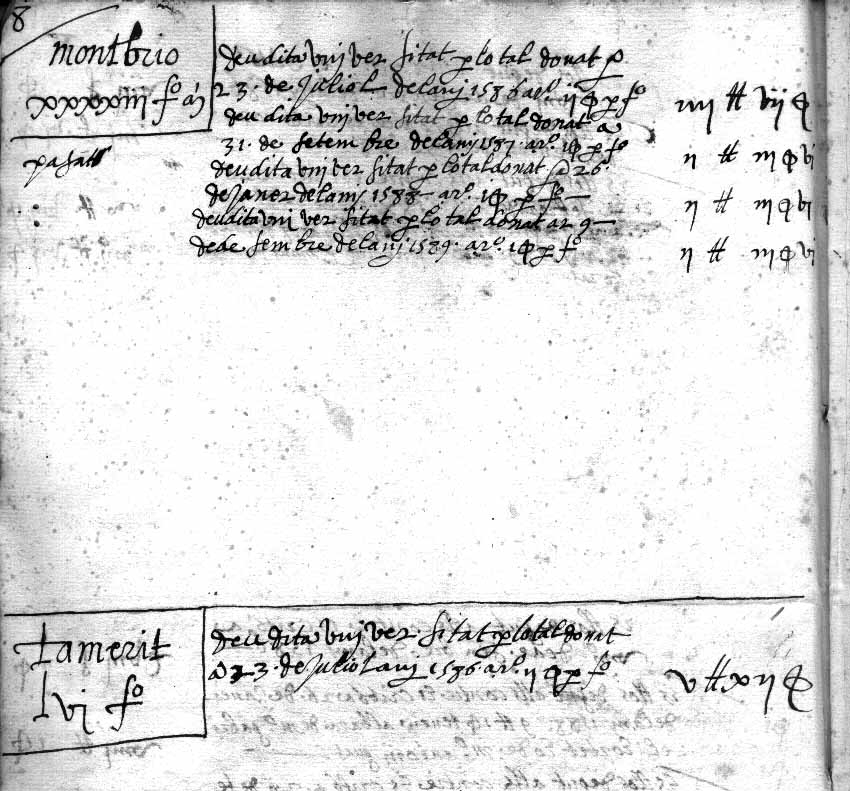 8
montbrio
xxxxxiii fo
pasats
deu dita universitat p lo tal donat p
23 de Juliol delanj 1586 aro ij p fo iiij ħ vij
deu dita universitat p lo tal donat a
31 de setembre delanj 1587 aro 1 p fo ij ħ iij vj
deu dita universitat p lo tal donat a 26
de janer delanj 1588 aro 1 p fo ij ħ iij vj
deu dita universitat p lo tal donat a 9
de desembre delanj 1589 aro 1 p fo ij ħ iij vj
tamerit
lvj fo
deu dita universitat p lo tal donat
a 23 de Juliol anj 1586 aro ij p fo v ħ xij